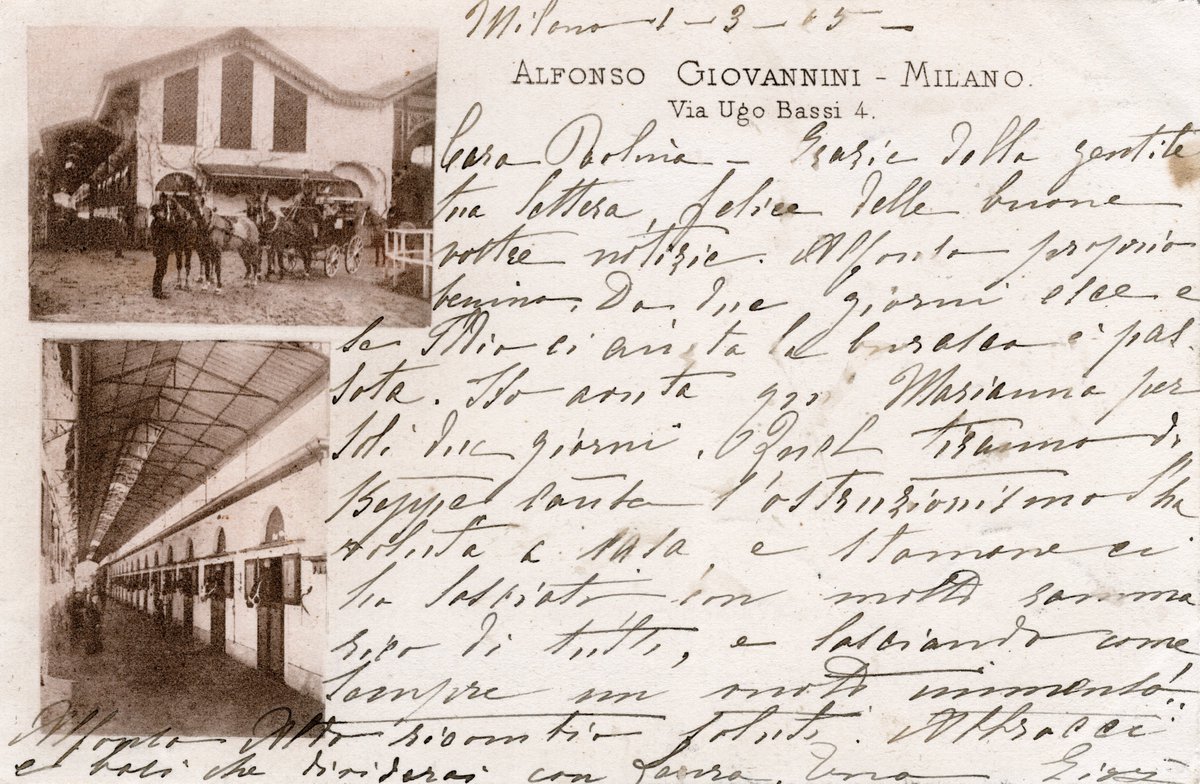 Milano 1-3-05-
ALFONSO GIOVANNINI - MILANO.
Via Ugo Bassi 4.
Cara Paolina - Grazie della gentile
tua lettera, felice delle buone
vostre notizie. Alfonso proprio
benino. Da due giorni esce e
se Dio ci aiuta la burasca è pas-
sata. Ho avuta qui Marianna per
soli due giorni. Quel tiranno di
Beppe causa l'ostruzionismo l'ha
voluta a casa e stamane ci
ha lasciati con molto ramma
rico di tutti, e lasciando come
sempre un vuoto immenso.
Alfonso Aldo ricambia saluti. Abbracci
e baci che dividerai con Laura. Tua